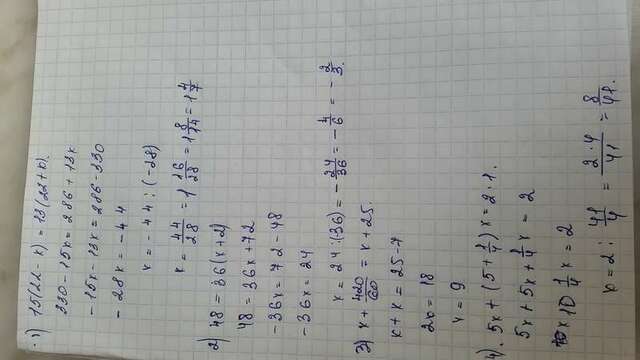 1) 15(22 - x) = 13(22 + x).
330 - 15x = 286 + 13x
- 15x - 13x = 286 - 330
- 28x = - 44
x = - 44 : (-28)
x = 44/28 = 1 16/28 = 1 8/14 = 1 4/7
2) 48 = 36(x + 2)
48 = 36x + 72
- 36x = 72 - 48
- 36x = 24
x = 24 : (-36) = - 24/36 = - 4/6 = - 2/3.
3) x + 420/60 = x + 25.
x + x = 25 - 7
2x = 18
x = 9
4). 5x + (5 + 1/4) x = 2 · 1.
5x + 5x + 1/4 x = 2
10 1/4 x = 2
x = 2 : 41/4 = 2 · 4/41 = 8/41.